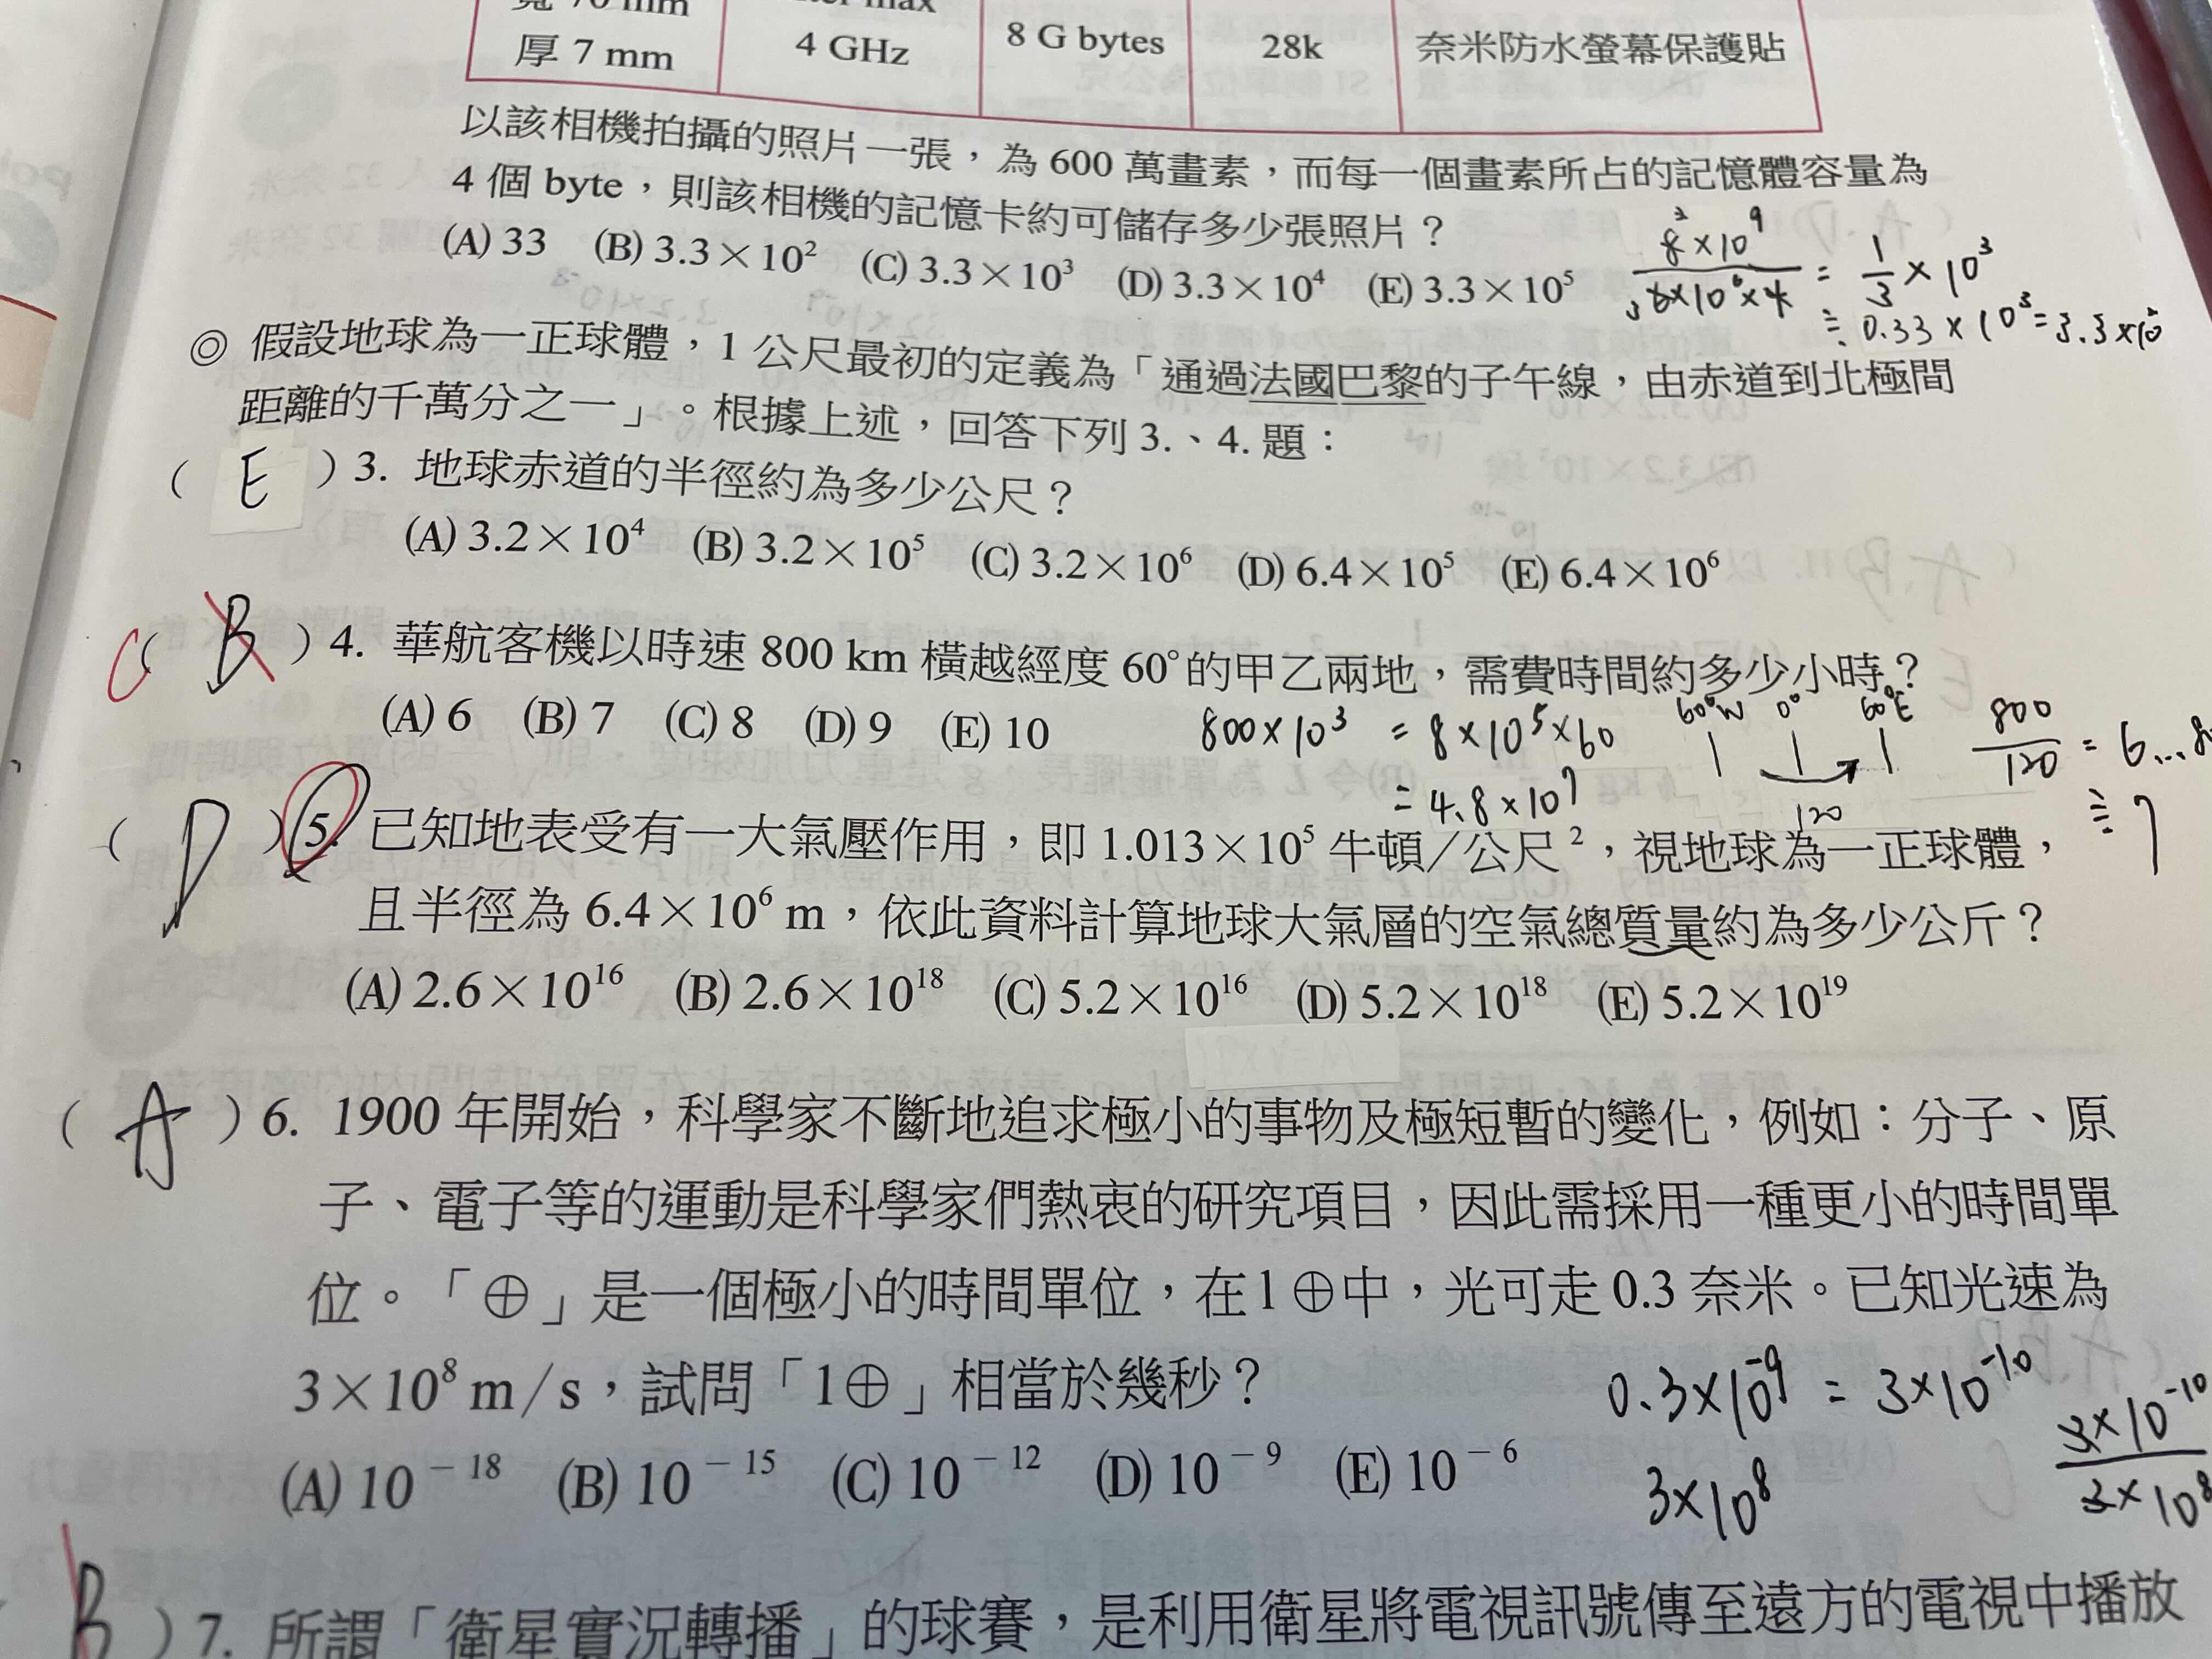 厚 7 mm 4 GHz 8 G bytes 28k 奈米防水螢幕保護貼
以該相機拍攝的照片一張，為 600 萬畫素，而每一個畫素所占的記憶體容量為
4 個 byte，則該相機的記憶卡約可儲存多少張照片？
(A) 33 (B) 3.3×10² (C) 3.3×10³ (D) 3.3×10⁴ (E) 3.3×10⁵
= 1/3 × 10³
≒ 0.33 × 10³ = 3.3×10²
◎ 假設地球為一正球體，1 公尺最初的定義為「通過法國巴黎的子午線，由赤道到北極間
距離的千萬分之一」。根據上述，回答下列 3.、4. 題：
( E ) 3. 地球赤道的半徑約為多少公尺？
(A) 3.2×10⁴ (B) 3.2×10⁵ (C) 3.2×10⁶ (D) 6.4×10⁵ (E) 6.4×10⁶
C ( B ) 4. 華航客機以時速 800 km 橫越經度 60°的甲乙兩地，需費時間約多少小時？
(A) 6 (B) 7 (C) 8 (D) 9 (E) 10
800×10³ = 8×10⁵×60
= 4.8×10⁷
60°W 0° 60°E
120
800/120 = 6...8
≒ 7
( D ) 5. 已知地表受有一大氣壓作用，即 1.013×10⁵ 牛頓／公尺²，視地球為一正球體，
且半徑為 6.4×10⁶ m，依此資料計算地球大氣層的空氣總質量約為多少公斤？
(A) 2.6×10¹⁶ (B) 2.6×10¹⁸ (C) 5.2×10¹⁶ (D) 5.2×10¹⁸ (E) 5.2×10¹⁹
( A ) 6. 1900 年開始，科學家不斷地追求極小的事物及極短暫的變化，例如：分子、原
子、電子等的運動是科學家們熱衷的研究項目，因此需採用一種更小的時間單
位。「⊕」是一個極小的時間單位，在1⊕中，光可走 0.3 奈米。已知光速為
3×10⁸ m/s，試問「1⊕」相當於幾秒？
0.3×10⁻⁹ = 3×10⁻¹⁰
3×10⁻¹⁰/3×10⁸
(A) 10⁻¹⁸ (B) 10⁻¹⁵ (C) 10⁻¹² (D) 10⁻⁹ (E) 10⁻⁶
3×10⁸
B ) 7. 所謂「衛星實況轉播」的球賽，是利用衛星將電視訊號傳至遠方的電視中播放